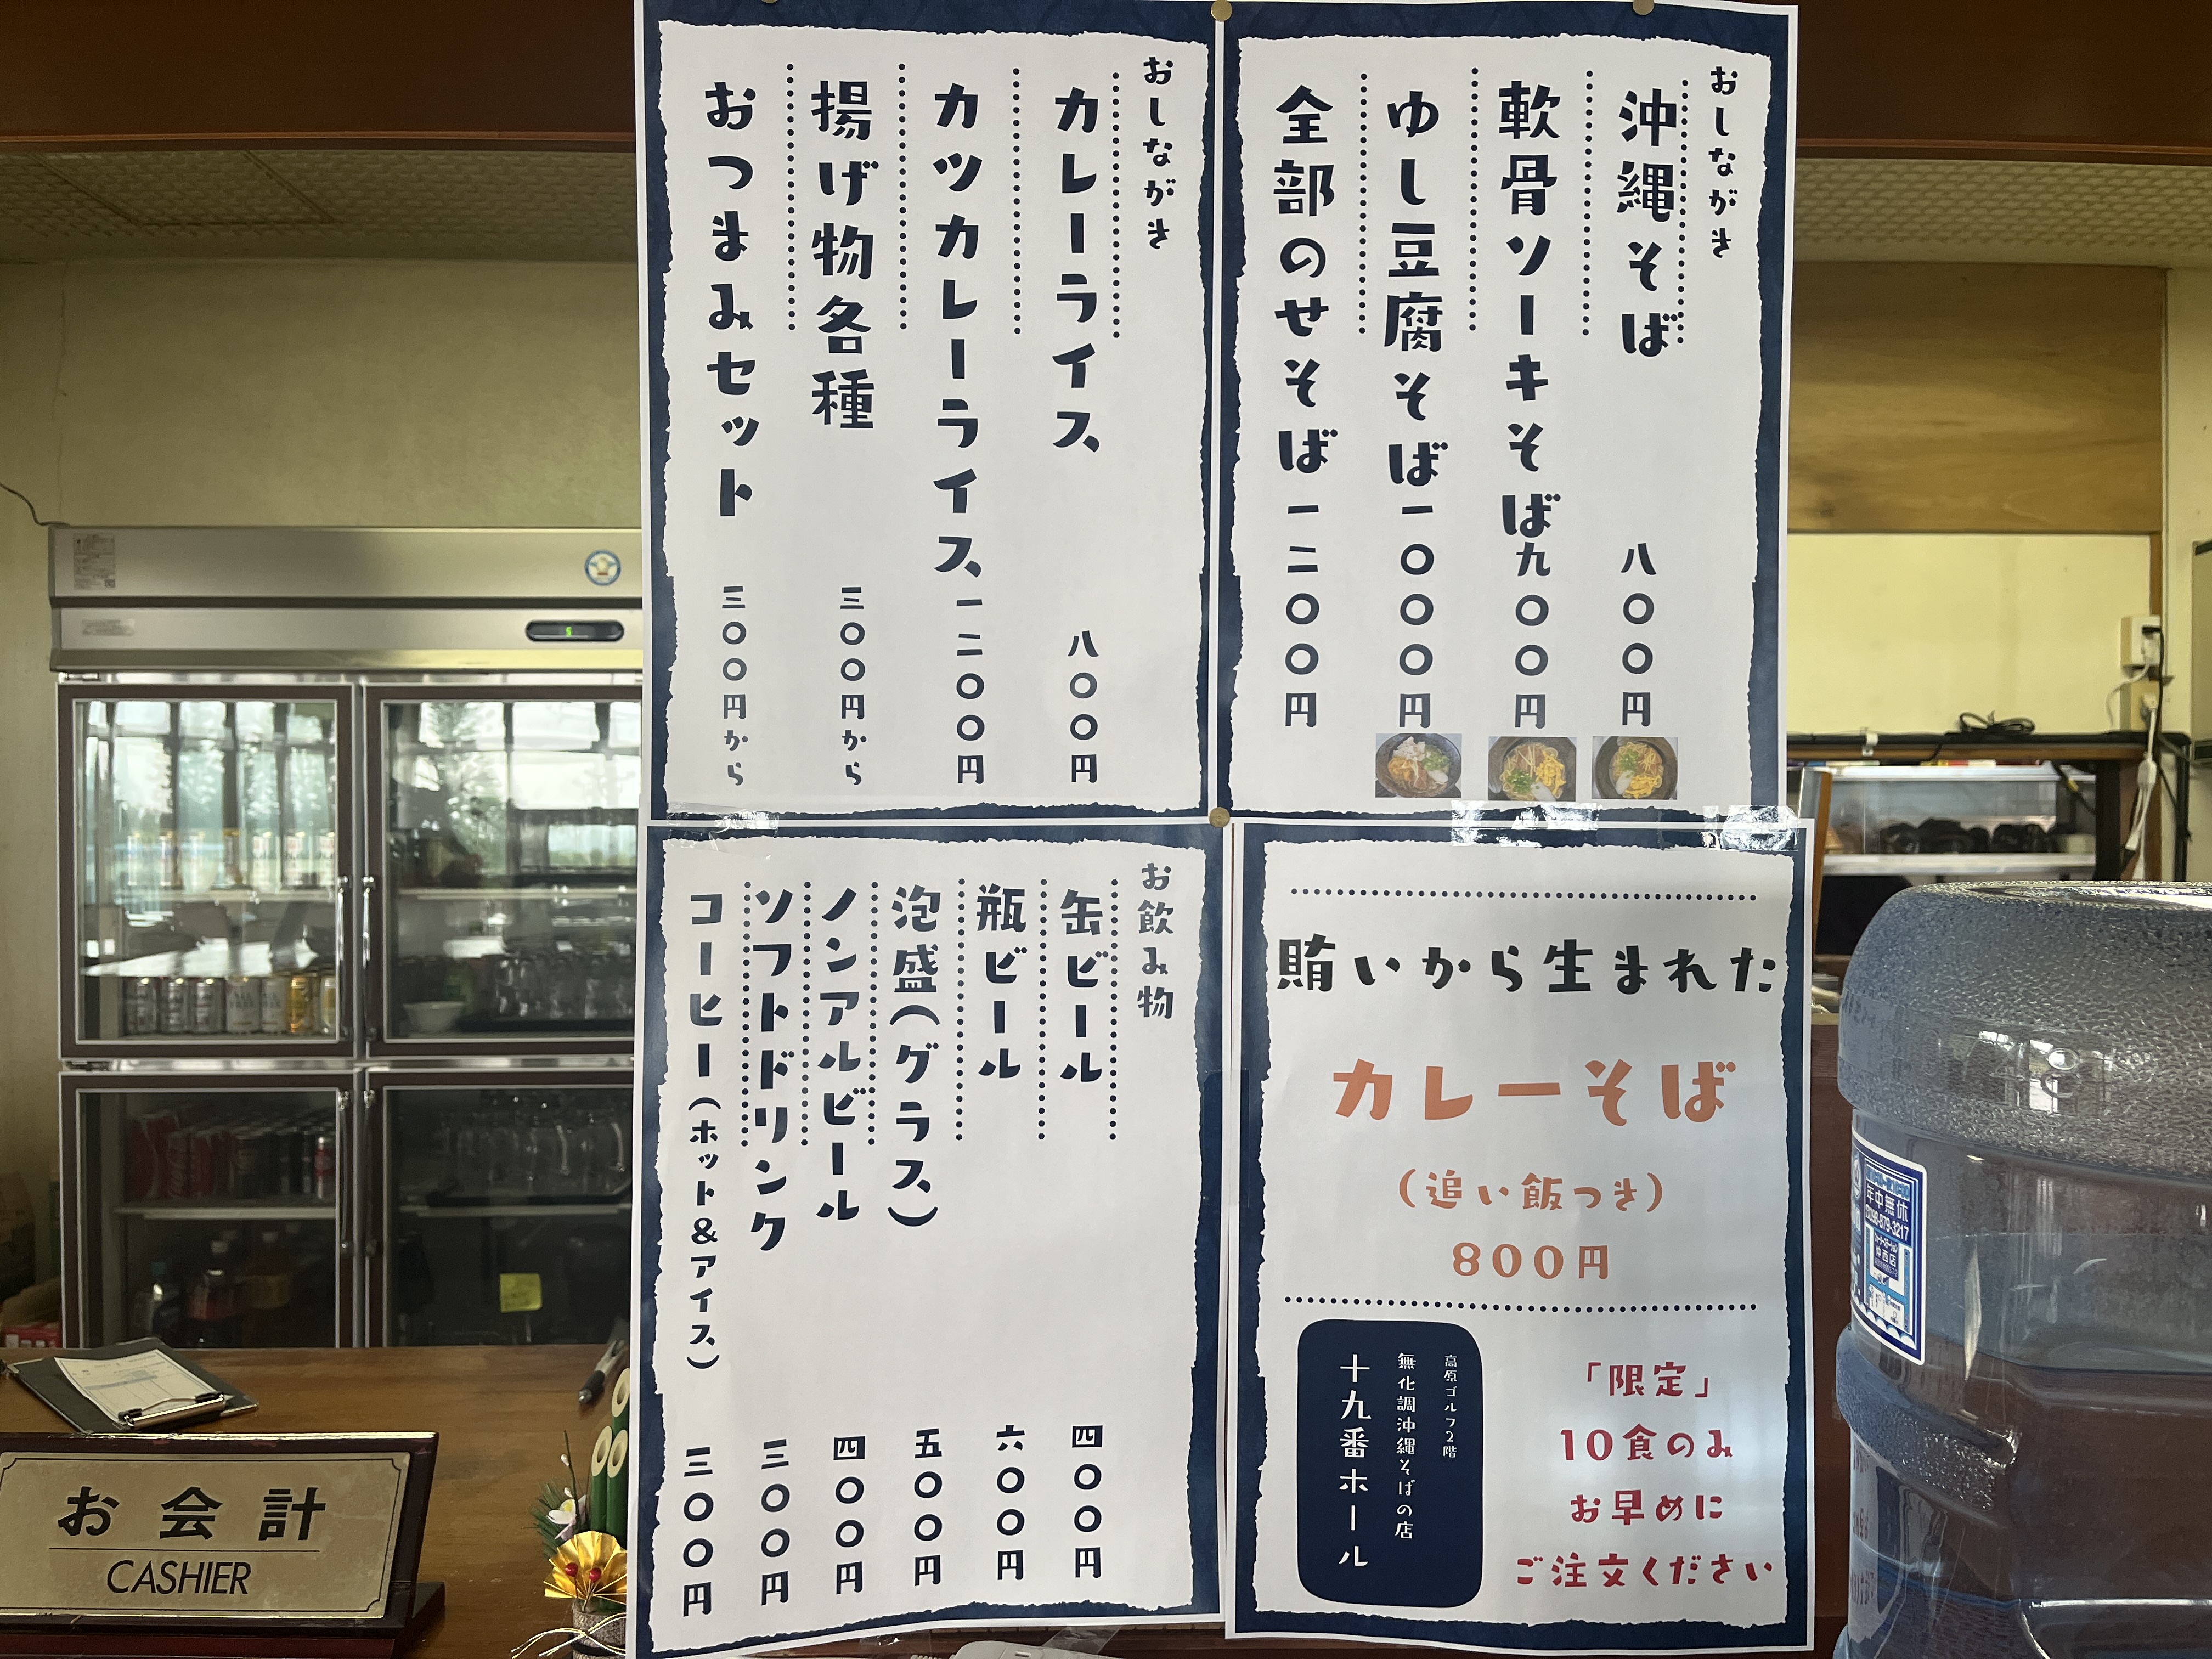 おしながき
沖縄そば 八〇〇円
軟骨ソーキそば 九〇〇円
ゆし豆腐そば 一〇〇〇円
全部のせそば 一二〇〇円
おしながき
カレーライス 八〇〇円
カツカレーライス 一二〇〇円
揚げ物各種 三〇〇円から
おつまみセット 三〇〇円から
お飲み物
缶ビール 四〇〇円
瓶ビール 六〇〇円
泡盛(グラス) 五〇〇円
ノンアルビール 四〇〇円
ソフトドリンク 三〇〇円
コーヒー(ホット&アイス) 三〇〇円
賄いから生まれた
カレーそば
(追い飯つき)
800円
「限定」
10食のみ
お早めに
ご注文ください
高原ゴルフ2階
無化調沖縄そばの店
十九番ホール
お会計
CASHIER
年中無休